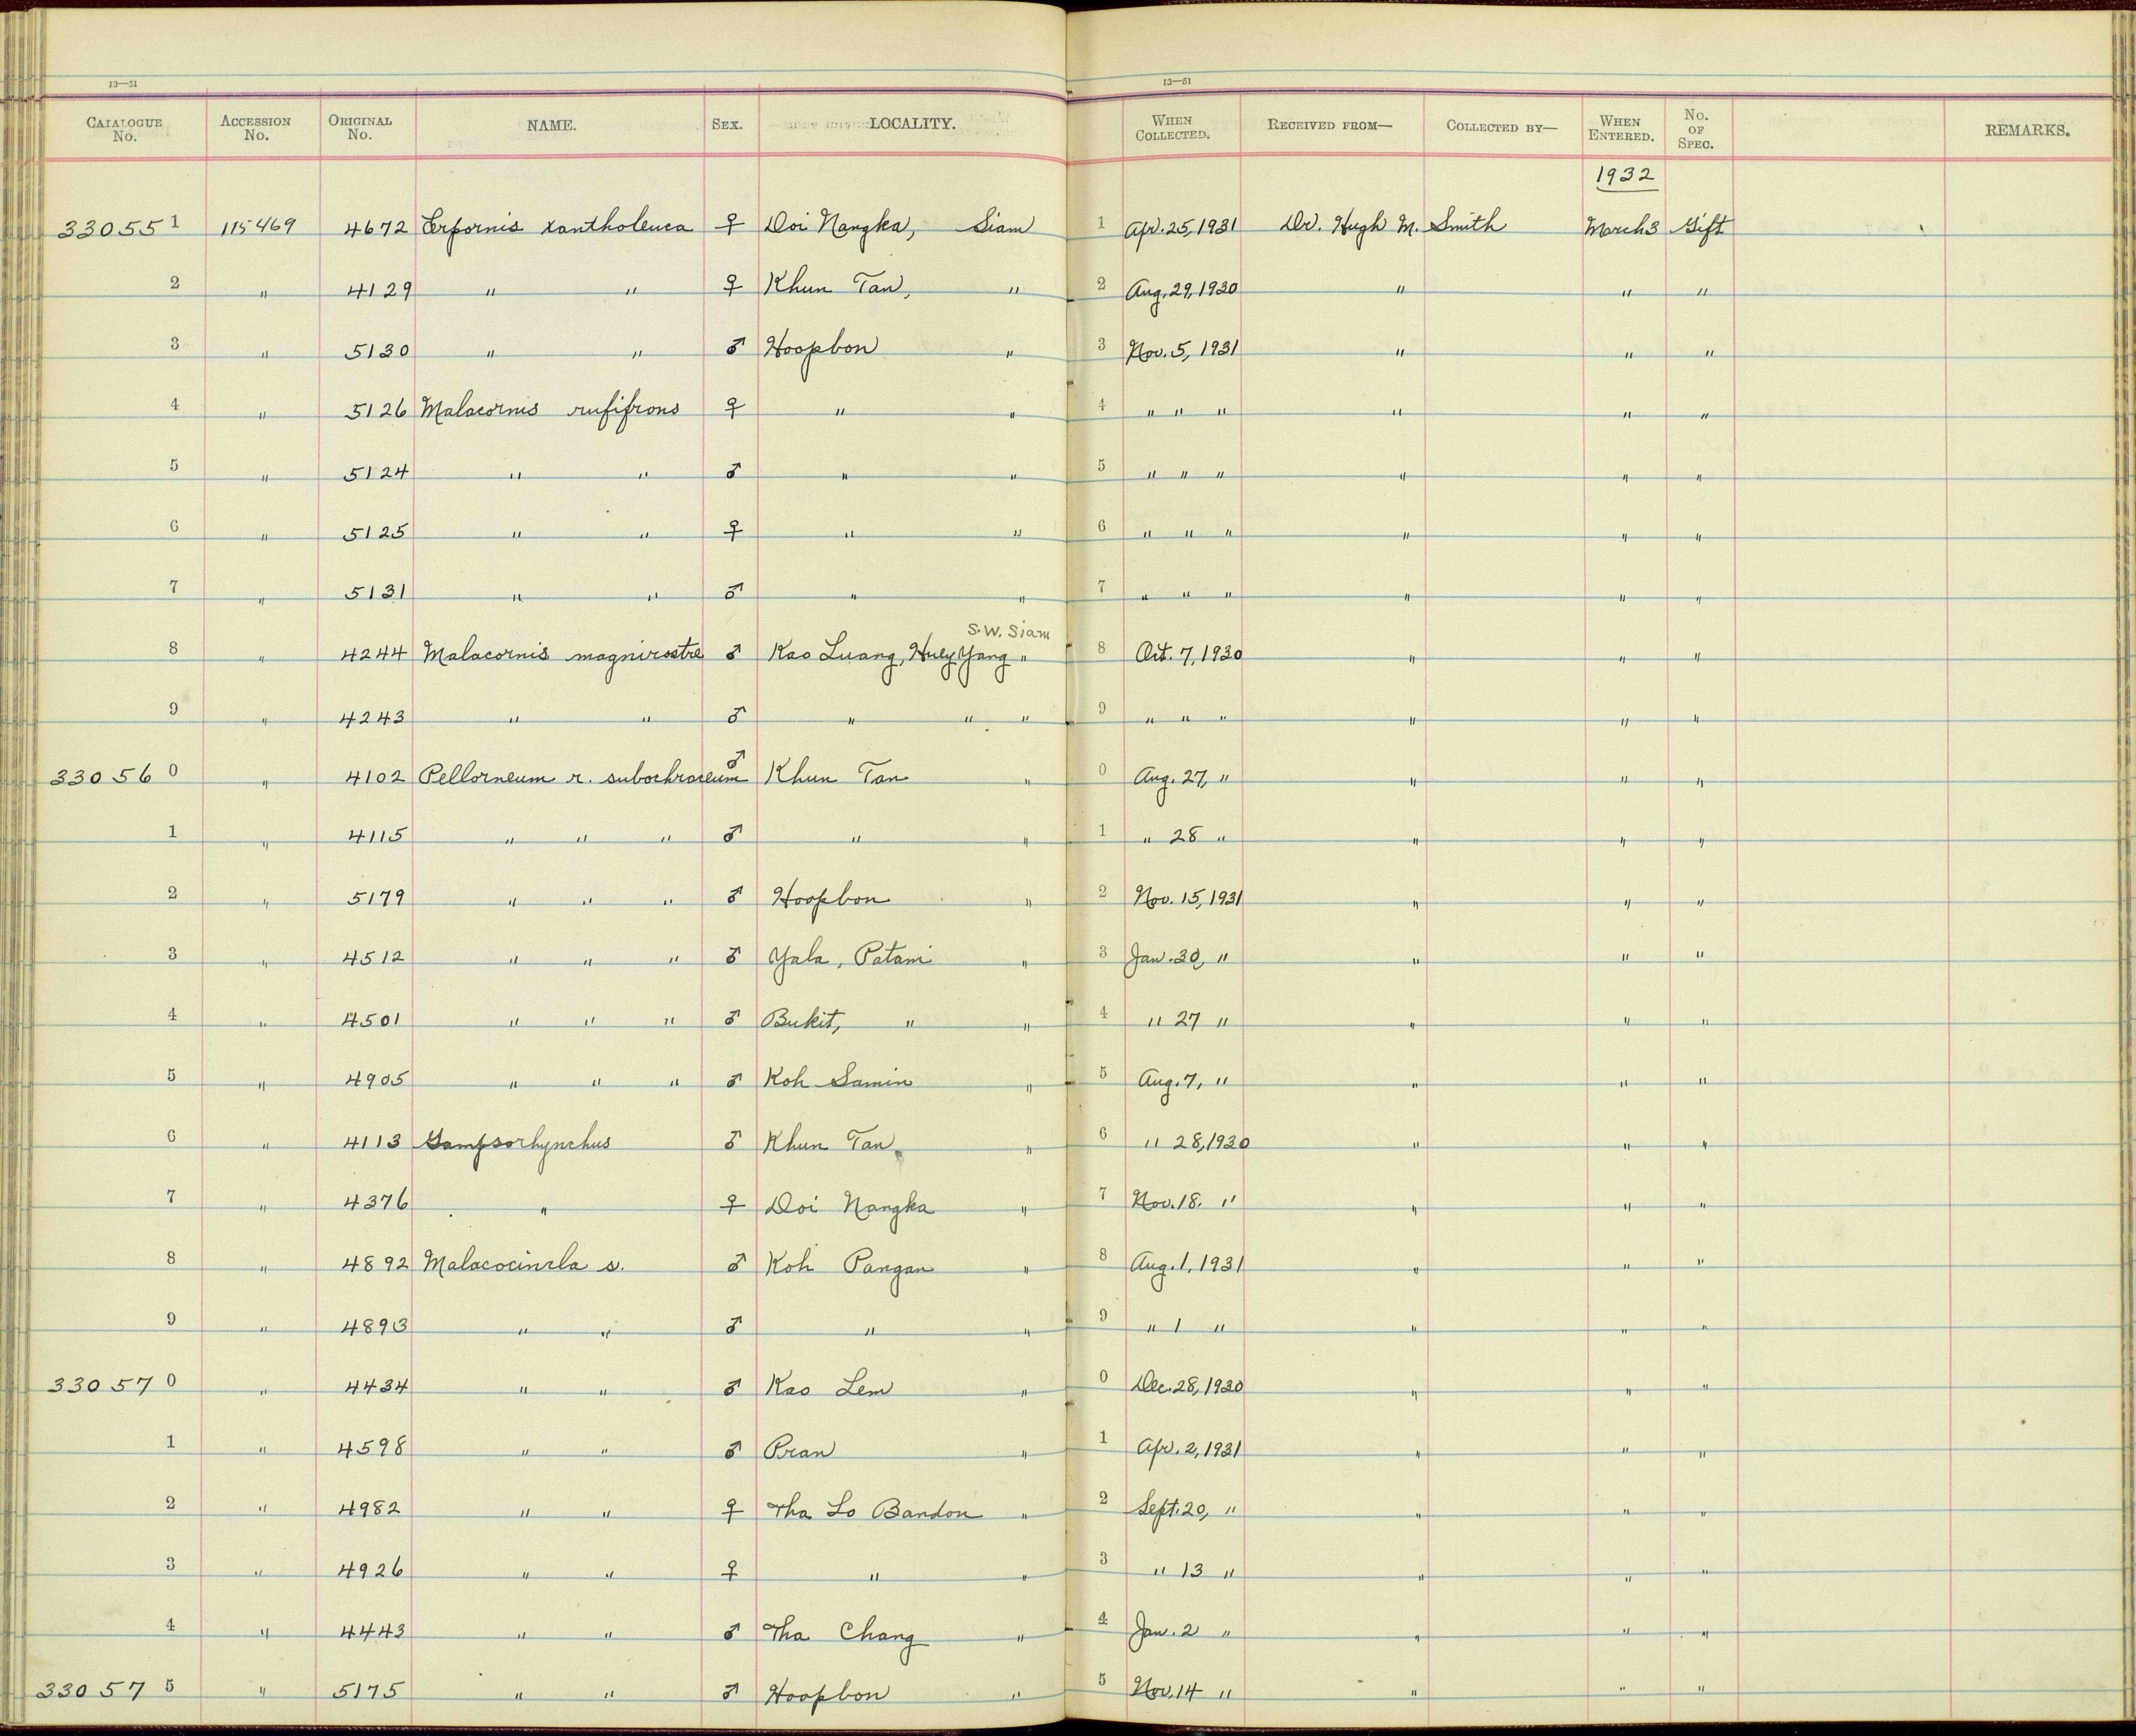 13—51 13—51
CATALOGUE No. ACCESSION No. ORIGINAL No. NAME. SEX. LOCALITY. WHEN COLLECTED. RECEIVED FROM— COLLECTED BY— WHEN ENTERED. No. OF SPEC. REMARKS.
1932
330551 115469 4672 Erpornis xantholeuca ♀ Doi Nangka, Siam 1 Apr. 25, 1931 Dr. Hugh M. Smith March 3 Gift
2 " 4129 " " ♀ Khun Tan, " 2 Aug. 29, 1930 " " "
3 " 5130 " " ♂ Hoopbon " 3 Nov. 5, 1931 " " "
4 " 5126 Malacornis rufifrons ♀ " " 4 " " " " " "
5 " 5124 " " ♂ " " 5 " " " " " "
6 " 5125 " " ♀ " " 6 " " " " " "
7 " 5131 " " ♂ " " 7 " " " " " "
S.W. Siam
8 " 4244 Malacornis magnirostre ♂ Kao Luang, Huey Yang " 8 Oct. 7, 1930 " " "
9 " 4243 " " ♂ " " " 9 " " " " " "
330560 " 4102 Pellorneum r. subochraceum ♂ Khun Tan " 0 Aug. 27, " " " "
1 " 4115 " " " ♂ " " 1 " 28 " " " "
2 " 5179 " " " ♂ Hoopbon " 2 Nov. 15, 1931 " " "
3 " 4512 " " " ♂ Yala, Patani " 3 Jan. 30, " " " "
4 " 4501 " " " ♂ Bukit, " " 4 " 27 " " " "
5 " 4905 " " " ♂ Koh Samin " 5 Aug. 7, " " " "
6 " 4113 Gampsorhynchus ♂ Khun Tan " 6 " 28, 1930 " " "
7 " 4376 " ♀ Doi Nangka " 7 Nov. 18. " " " "
8 " 4892 Malacocincla s. ♂ Koh Pangan " 8 Aug. 1, 1931 " " "
9 " 4893 " " ♂ " " 9 " 1 " " " "
330570 " 4434 " " ♂ Kao Lem " 0 Dec. 28, 1930 " " "
1 " 4598 " " ♂ Pran " 1 Apr. 2, 1931 " " "
2 " 4982 " " ♀ Tha Lo Bandon " 2 Sept. 20, " " " "
3 " 4926 " " ♀ " " 3 " 13 " " " "
4 " 4443 " " ♂ Tha Chang " 4 Jan. 2 " " " "
330575 " 5175 " " ♂ Hoopbon " 5 Nov. 14 " " " "